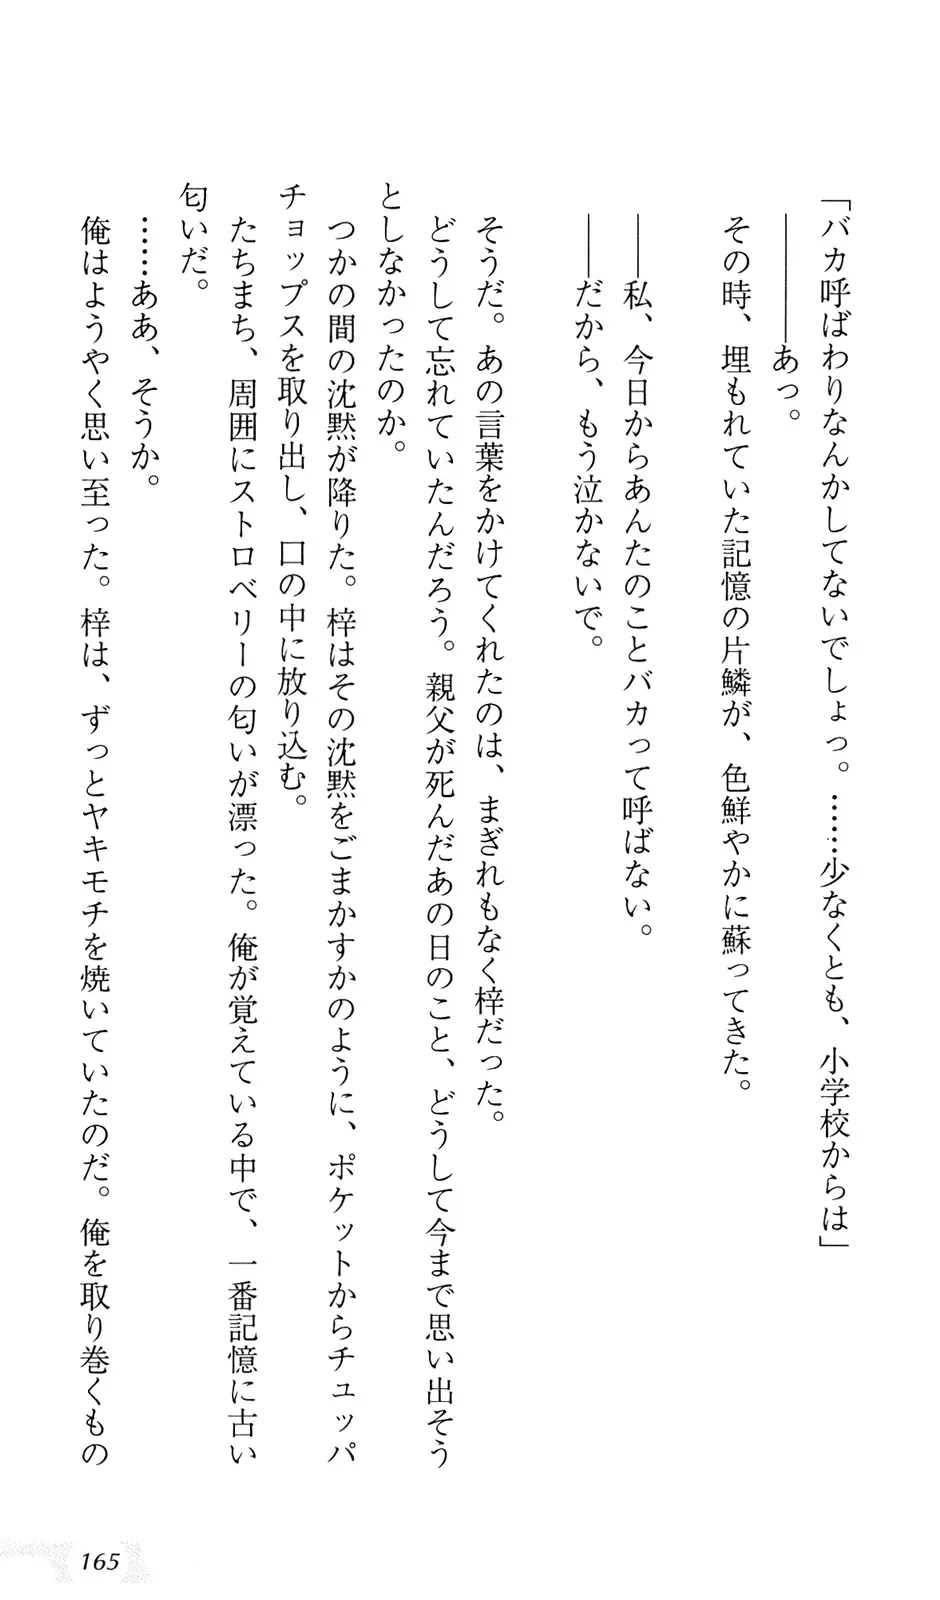 「バカ呼ばわりなんかしてないでしょっ。……少なくとも、小学校からは」
――――あっ。
その時、埋もれていた記憶の片鱗が、色鮮やかに蘇ってきた。
――私、今日からあんたのことバカって呼ばない。
――だから、もう泣かないで。
そうだ。あの言葉をかけてくれたのは、まぎれもなく梓だった。
どうして忘れていたんだろう。親父が死んだあの日のこと、どうして今まで思い出そう
としなかったのか。
つかの間の沈黙が降りた。梓はその沈黙をごまかすかのように、ポケットからチュッパ
チョップスを取り出し、口の中に放り込む。
たちまち、周囲にストロベリーの匂いが漂った。俺が覚えている中で、一番記憶に古い
匂いだ。
……ああ、そうか。
俺はようやく思い至った。梓は、ずっとヤキモチを焼いていたのだ。俺を取り巻くもの
165